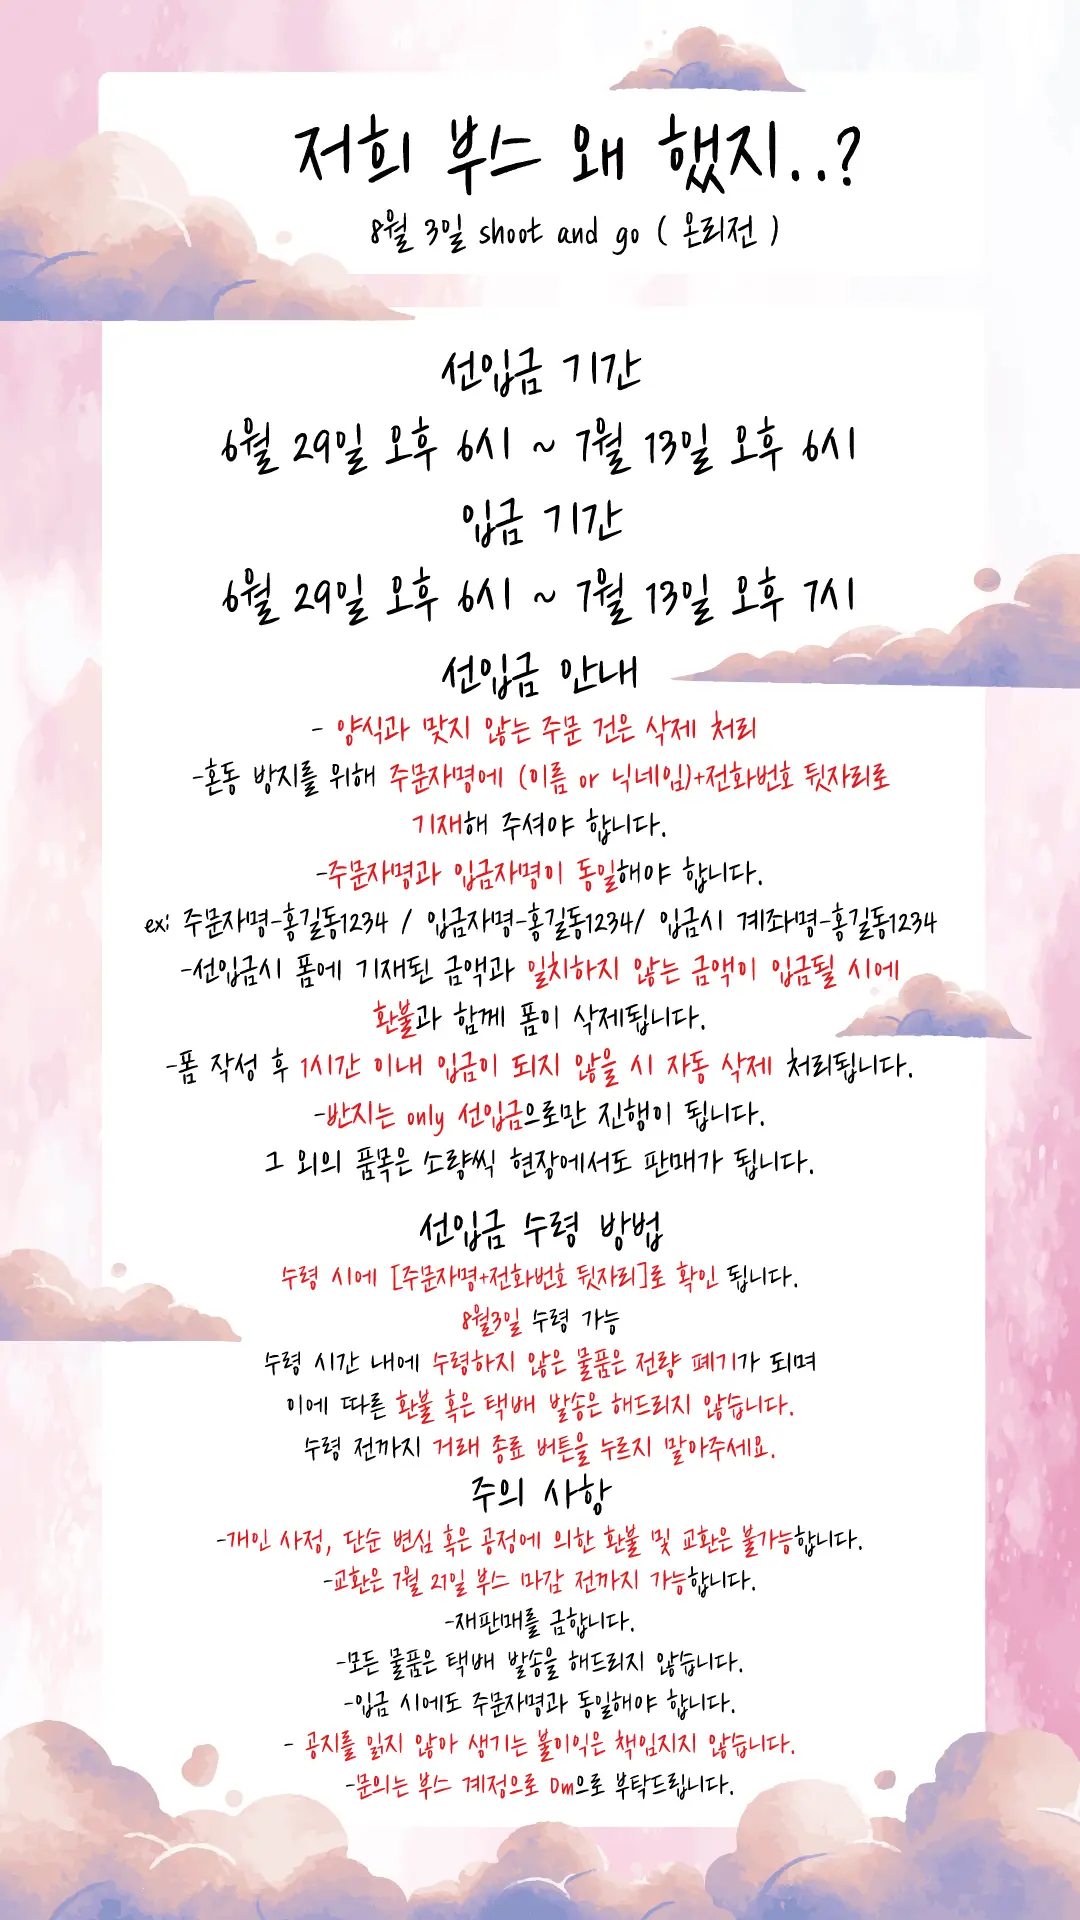 저희 부스 왜 했지..?
8월 3일 shoot and go ( 온리전 )
선입금 기간
6월 29일 오후 6시 ~ 7월 13일 오후 6시
입금 기간
6월 29일 오후 6시 ~ 7월 13일 오후 7시
선입금 안내
- 양식과 맞지 않는 주문 건은 삭제 처리
-혼동 방지를 위해 주문자명에 (이름 or 닉네임)+전화번호 뒷자리로
기재해 주셔야 합니다.
-주문자명과 입금자명이 동일해야 합니다.
ex: 주문자명-홍길동1234 / 입금자명-홍길동1234/ 입금시 계좌명-홍길동1234
-선입금시 폼에 기재된 금액과 일치하지 않는 금액이 입금될 시에
환불과 함께 폼이 삭제됩니다.
-폼 작성 후 1시간 이내 입금이 되지 않을 시 자동 삭제 처리됩니다.
-반지는 only 선입금으로만 진행이 됩니다.
그 외의 품목은 소량씩 현장에서도 판매가 됩니다.
선입금 수령 방법
수령 시에 [주문자명+전화번호 뒷자리]로 확인 됩니다.
8월3일 수령 가능
수령 시간 내에 수령하지 않은 물품은 전량 폐기가 되며
이에 따른 환불 혹은 택배 발송은 해드리지 않습니다.
수령 전까지 거래 종료 버튼을 누르지 말아주세요.
주의 사항
-개인 사정, 단순 변심 혹은 공정에 의한 환불 및 교환은 불가능합니다.
-교환은 7월 21일 부스 마감 전까지 가능합니다.
-재판매를 금합니다.
-모든 물품은 택배 발송을 해드리지 않습니다.
-입금 시에도 주문자명과 동일해야 합니다.
- 공지를 읽지 않아 생기는 불이익은 책임지지 않습니다.
-문의는 부스 계정으로 Dm으로 부탁드립니다.